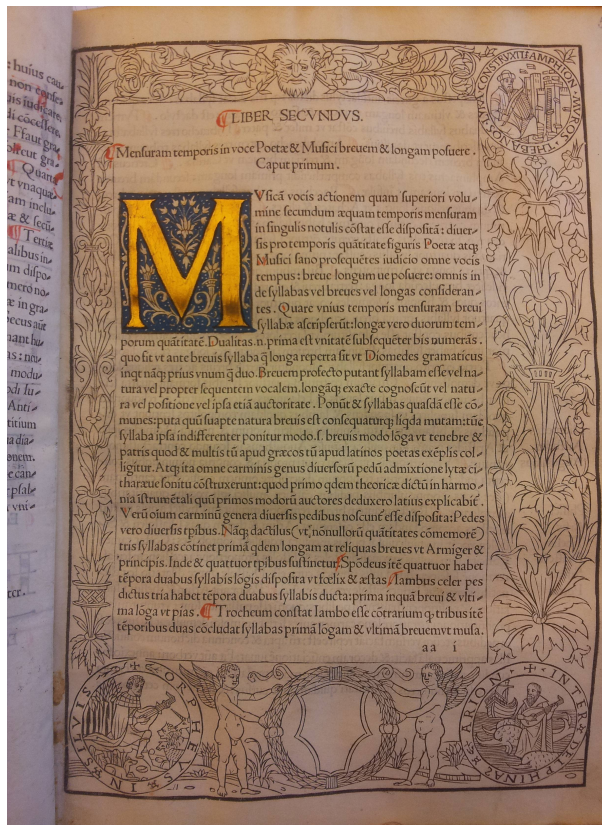 : huius cau
non conse
ais iudicare
di cōcessere
Ffaut gra
Quan
vt vnaquæ
am inclu
æ & secū
Tertiæ
alibus in
um dispo
mero no
æ in gra
pecus aūt
nant ba
as: nō
modu
odi lu
Anti
titium
a dia
onem.
e can
psal
vni
cer.
THEBANOS LYRA CONSTRVXIT AMPHION MVROS
¶LIBER SECVNDVS.
¶Mensuram temporis in voce Poetæ & Musici breuem & longam posuere.
Caput primum.
MVsicā vocis actionem quam superiori volu
mine secundum æquam temporis mensuram
in singulis notulis cōstat esse dispositā: diuer
sis pro temporis quātitate figuris Poetæ atq;
Musici sano prosequētes iudicio omne vocis
tempus: breue longum ue posuere: omnis in
de syllabas vel breues vel longas consideran
tes. Quare vnius temporis mensuram breui
syllabæ ascripserūt: longæ vero duorum tem
porum quātitatē. Dualitas .n. prima est vnitatē subsequēter bis numerās.
quo fit vt ante breuis syllaba q̄ longa reperta sit vt Diomedes gramaticus
inqt nāq; prius vnum q̄ duo. Breuem profecto putant syllabam esse vel na
tura vel propter sequentem vocalem. longāq; exacte cognoscūt vel natu
ra vel positione vel ipsa etiā auctoritate. Ponūt & syllabas quasdā esse cō
munes: puta quū suapte natura breuis est consequaturq; liqda mutam: tūc
syllaba ipsa indifferenter ponitur modo .s. breuis modo lōga vt tenebre &
patris quod & multis tū apud græcos tū apud latinos poetas exēplis col
ligitur. Atq; ita omne carminis genus diuersorū pedū admixtione lytæ ci
tharæue sonitu cōstruxerunt: quod primo qdem theoricæ dictū in harmo
nia īstrumētali quū primos modorū auctores deduxero latius explicabit̄.
Verū oium carminū genera diuersis pedibus noscunt̄ esse disposita: Pedes
vero diuersis tpibus. Nāq; dactilus (vt nōnullorū quātitates cōmemorē)
tris syllabas cōtinet primā qdem longam at reliquas breues vt Armiger &
principis. Inde & quattuor tpibus sustinetur. Spōdeus itē quattuor habet
tēpora duabus syllabis lōgis disposita vt fœlix & æstas. Iambus celer pes
dictus tria habet tēpora duabus syllabis ducta: prima inquā breui & vlti
ma lōga vt pias. ¶Trocheum constat Iambo esse cōtrarium q; tribus itē
tēporibus duas cōcludat syllabas primā lōgam & vltimā breuem vt musa.
aa i
ORPHEVS IN SILVIS
INTER DELPHINAS ARION